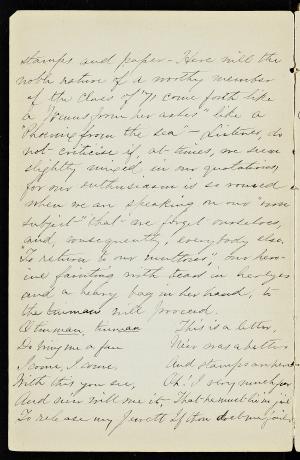 stamps and paper - Here will the
noble nature of a worthy member
of the Class of '71 come forth like
a "Venus from her ashes" like a
"Phoenix from the sea" - Listener, do
not criticise if, at times, we seem
slightly mixed in our quotations,
for our enthusiasm is so roused
when we are speaking on our "
subject" that we forget ourselves,
and, consequently, everybody else.
"To return to our muttons", our hero-
ine fainting with dead in her eyes
and a heavy bag in her hand, to
the tinman will proceed.
O tinman, tinman
Do bring me a fan
I come, I come,
With this you see,
And nice will me it,
To release my Jewett
This is a letter,
Never was a better
And stamps
Oh! I very much fear
That he must be in jail
If thou dost me fail